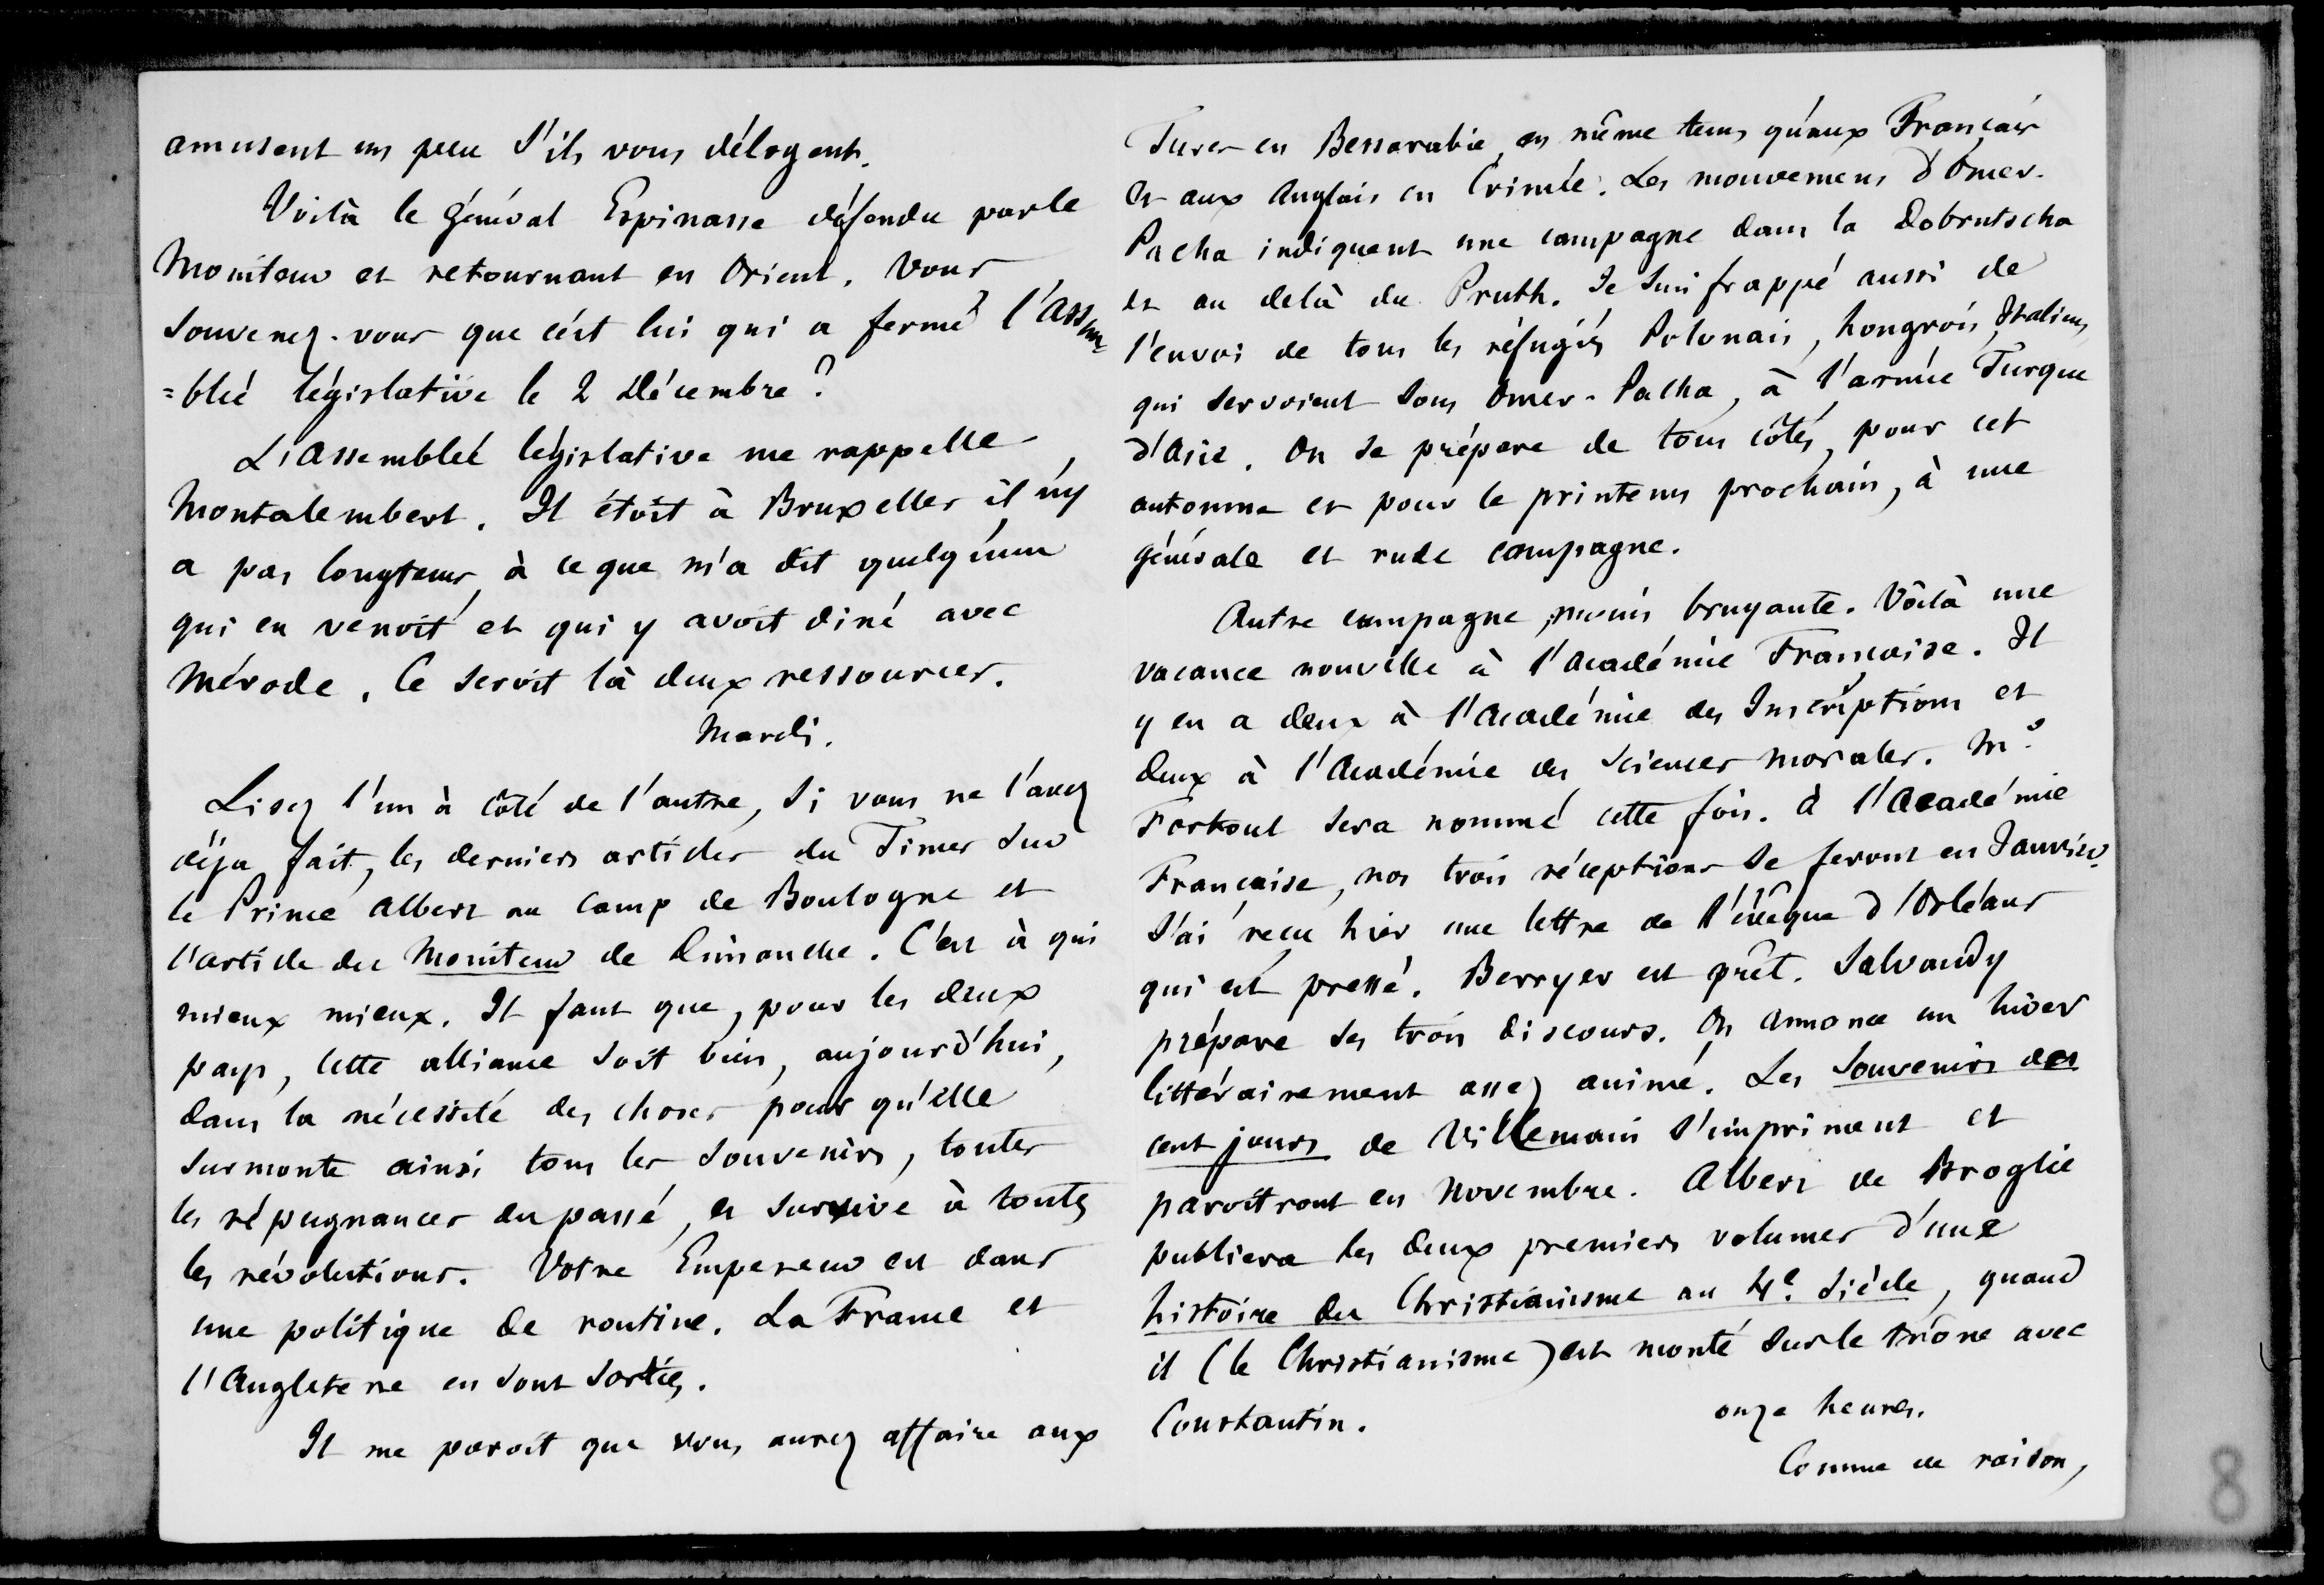 amusent un peu s'ils vous délogent.
Voilà le général Espinasse défendu par le
Moniteur et retournant en Orient. Vous
souvenez-vous que c'est lui qui a fermé l'assem=
=blée législative le 2 Décembre ?
L'assemblée législative me rappelle
Montalembert. Il étoit à Bruxelles il n'y
a pas longtems, à ce que m'a dit quelqu'un
qui en venoit et qui y avoit diné avec
Mérode. Ce seroit là deux ressources.
Mardi.
Lisez l'un à côté de l'autre, si vous ne l'avez
déja fait, les derniers articles du Times sur
le Prince Albert au camp de Boulogne et
l'article du Moniteur de Dimanche. C'est à qui
mieux mieux. Il faut que, pour les deux
pays, cette alliance soit bien, aujourd'hui,
dans la nécessité des choses pour qu'elle
surmonte ainsi tous les souvenirs, toutes
les répugnances du passé, et survive à toutes
les révolutions. Votre Empereur est dans
une politique de routine. La France et
l'Angleterre en sont sorties.
Il me paroit que vous aurez affaire aux
Turcs en Bessarabie, en même tems qu'aux Français
et aux Anglais en Crimée. Les mouvemens d'Omer-
Pacha indiquent une campagne dans la Dobrutscha
et au delà du Pruth. Je suis frappé aussi de
l'envoi de tous les réfugiés Polonais, hongrois, Italiens,
qui servoient sous Omer-Pacha, à l'armée Turque
d'Asie. On se prépare de tous côtés, pour cet
automne et pour le printems prochain, à une
générale et rude campagne.
Autre campagne, moins bruyante. Voilà une
vacance nouvelle à l'Académie Française. Il
y en a deux à l'Académie des Inscriptions et
deux à l'Académie des Sciences morales. Mr
Fortoul sera nommé cette fois. à l'Académie
Française, nos trois réceptions se feront en Janvier.
J'ai reçu hier une lettre de l'évêque d'Orléans
qui est pressé. Berryer est prêt. Salvandy
prépare ses trois discours. On annonce un hiver
littérairement assez animé. Les Souvenirs des
cent jours de Villemain s'impriment et
paroîtront en Novembre. Albert de Broglie
publiera les deux premiers volumes d'une
histoire du Christianisme au 4e siècle, quand
il (le Christianisme) est monté sur le trône avec
Constantin.
onze heures.
Comme de raison,
8